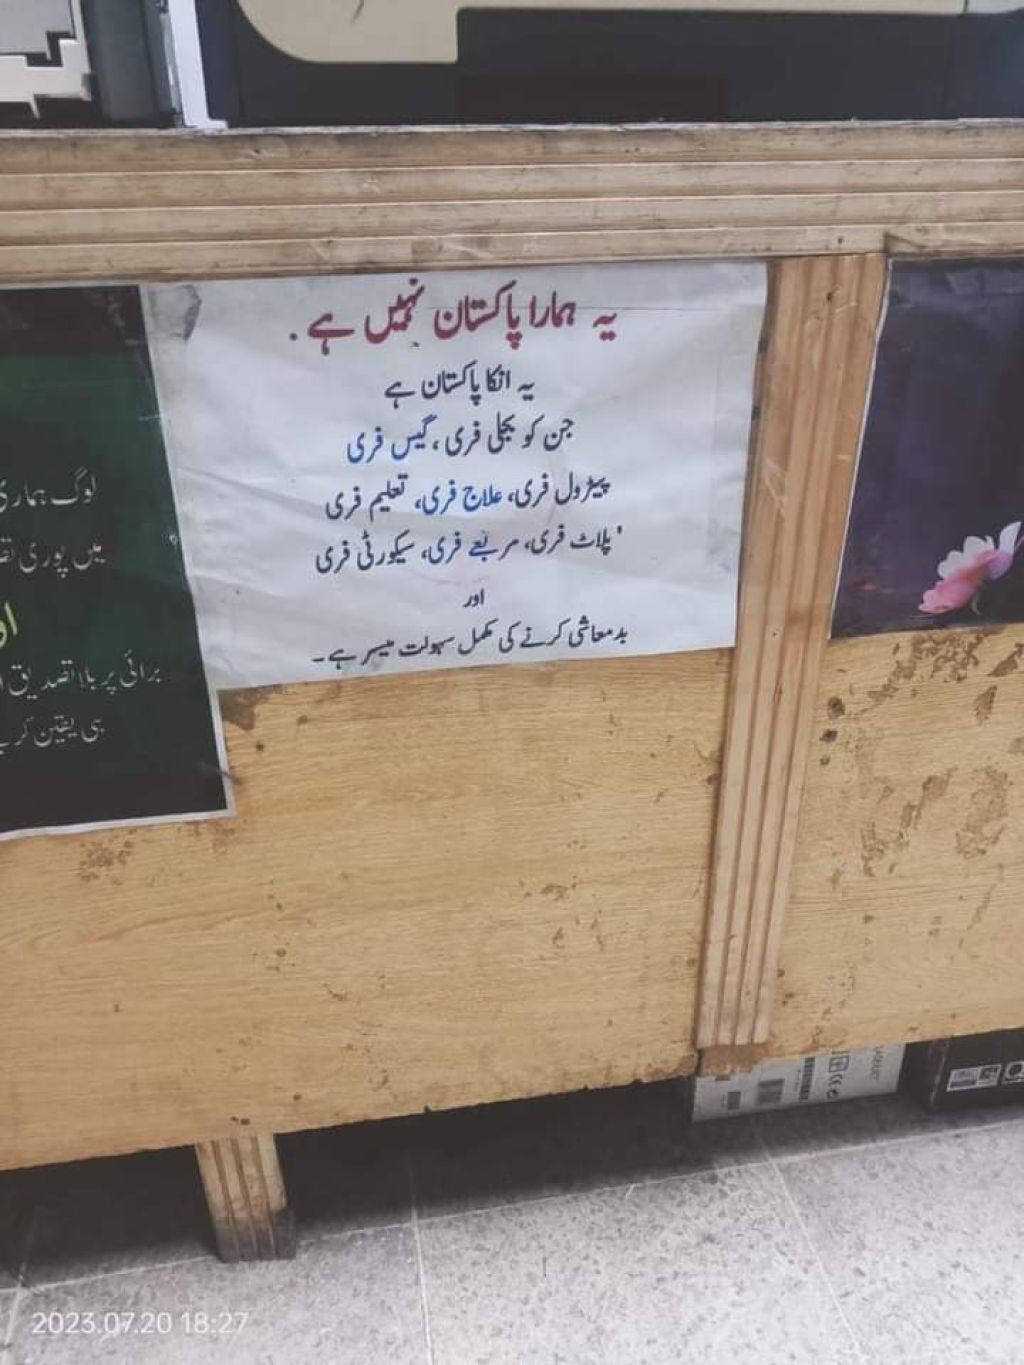 یہ ہمارا پاکستان نہیں ہے.
یہ انکا پاکستان ہے
جن کو بجلی فری، گیس فری
پیٹرول فری، علاج فری، تعلیم فری
'پلاٹ فری، مربعے فری، سیکورٹی فری
اور
بدمعاشی کرنے کی مکمل سہولت میسر ہے۔
لوگ ہماری
میں پوری
برائی پر بلا تصدیق
ہی یقین
2023.07.20 18:27